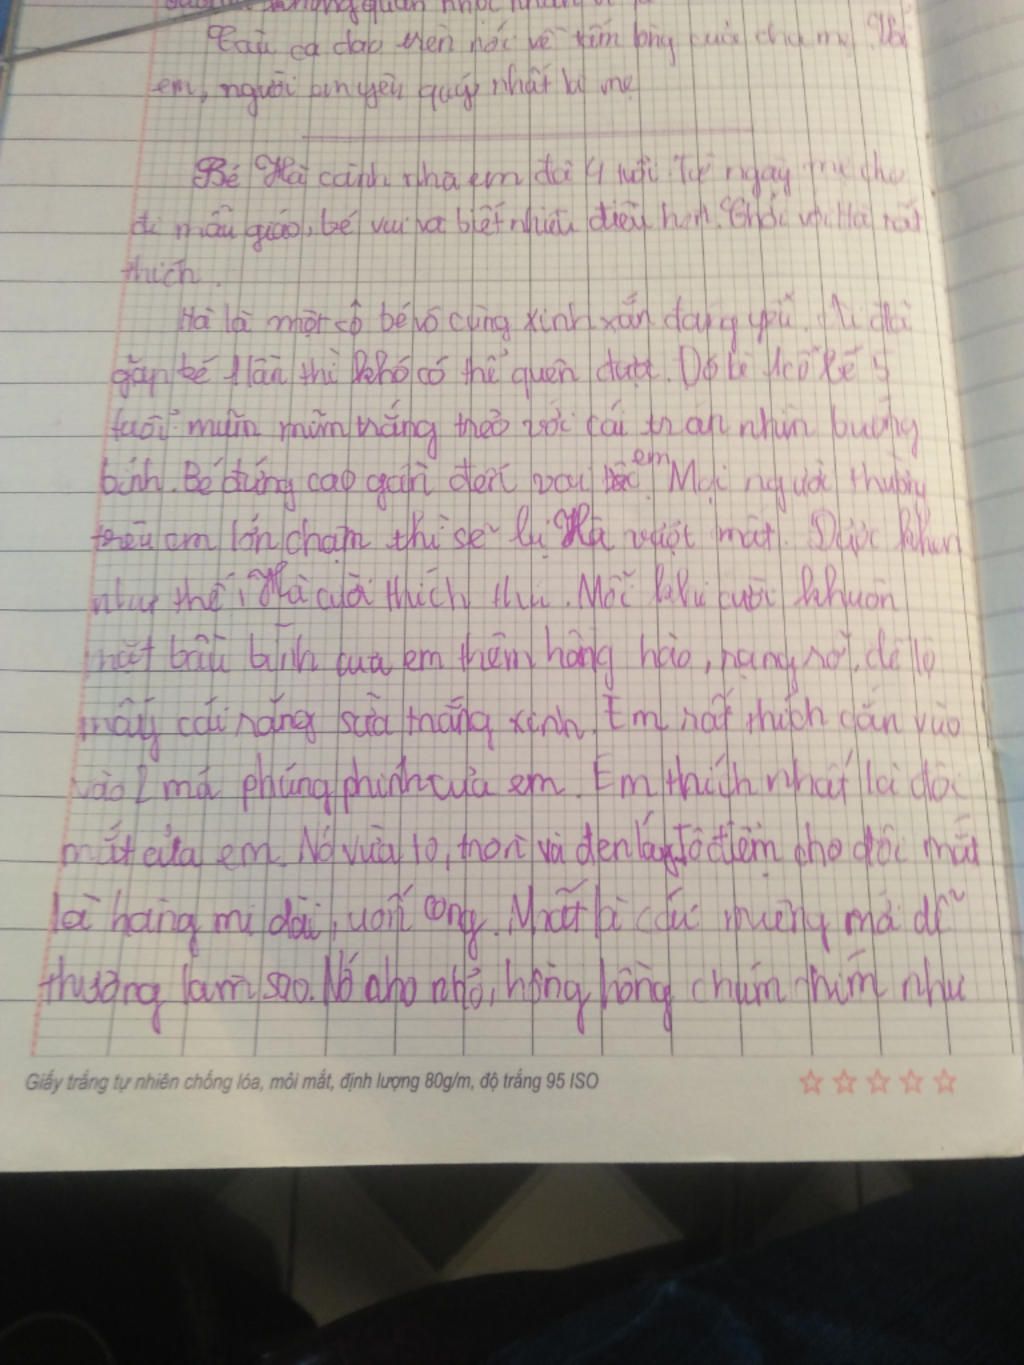 không quan
Câu ca dao trên nói về tấm lòng của cha mẹ. Với
em, người em yêu quý nhất là mẹ
Bé Hà cạnh nhà em đã 4 tuổi. Từ ngày mẹ cho
đi mẫu giáo, bé vui và biết nhiều điều hơn. Chơi với Hà rất
thích.
Hà là một cô bé vô cùng xinh xắn đáng yêu. đã
gặp bé 1 lần thì khó có thể quên được. Đó là 1 cô bé 5
tuổi mũm mĩm trắng trẻo với cái trán nhìn bướng
bỉnh. Bé đứng cao gần đến vai em. Mọi người thường
trêu em lớn chậm thì sẽ bị Hà vượt mặt. Được khen
như thế, Hà cười thích thú. Mỗi khi cười khuôn
mặt bầu bĩnh của em thêm hồng hào, rạng rỡ, để lộ
mấy cái răng sữa trắng xinh. Em rất thích cắn vào
vào 2 má phúng phính của em. Em thích nhất là đôi
mắt của em. Nó vừa to, tròn và đen láy. Tô điểm cho đôi mắt
là hàng mi dài, uốn cong. Mắt bì cúc mường mà dễ
thương làm sao. Nó nho nhỏ, hồng hồng chúm chím như
Giấy trắng tự nhiên chống lóa, mỏi mắt, định lượng 80g/m, độ trắng 95 ISO